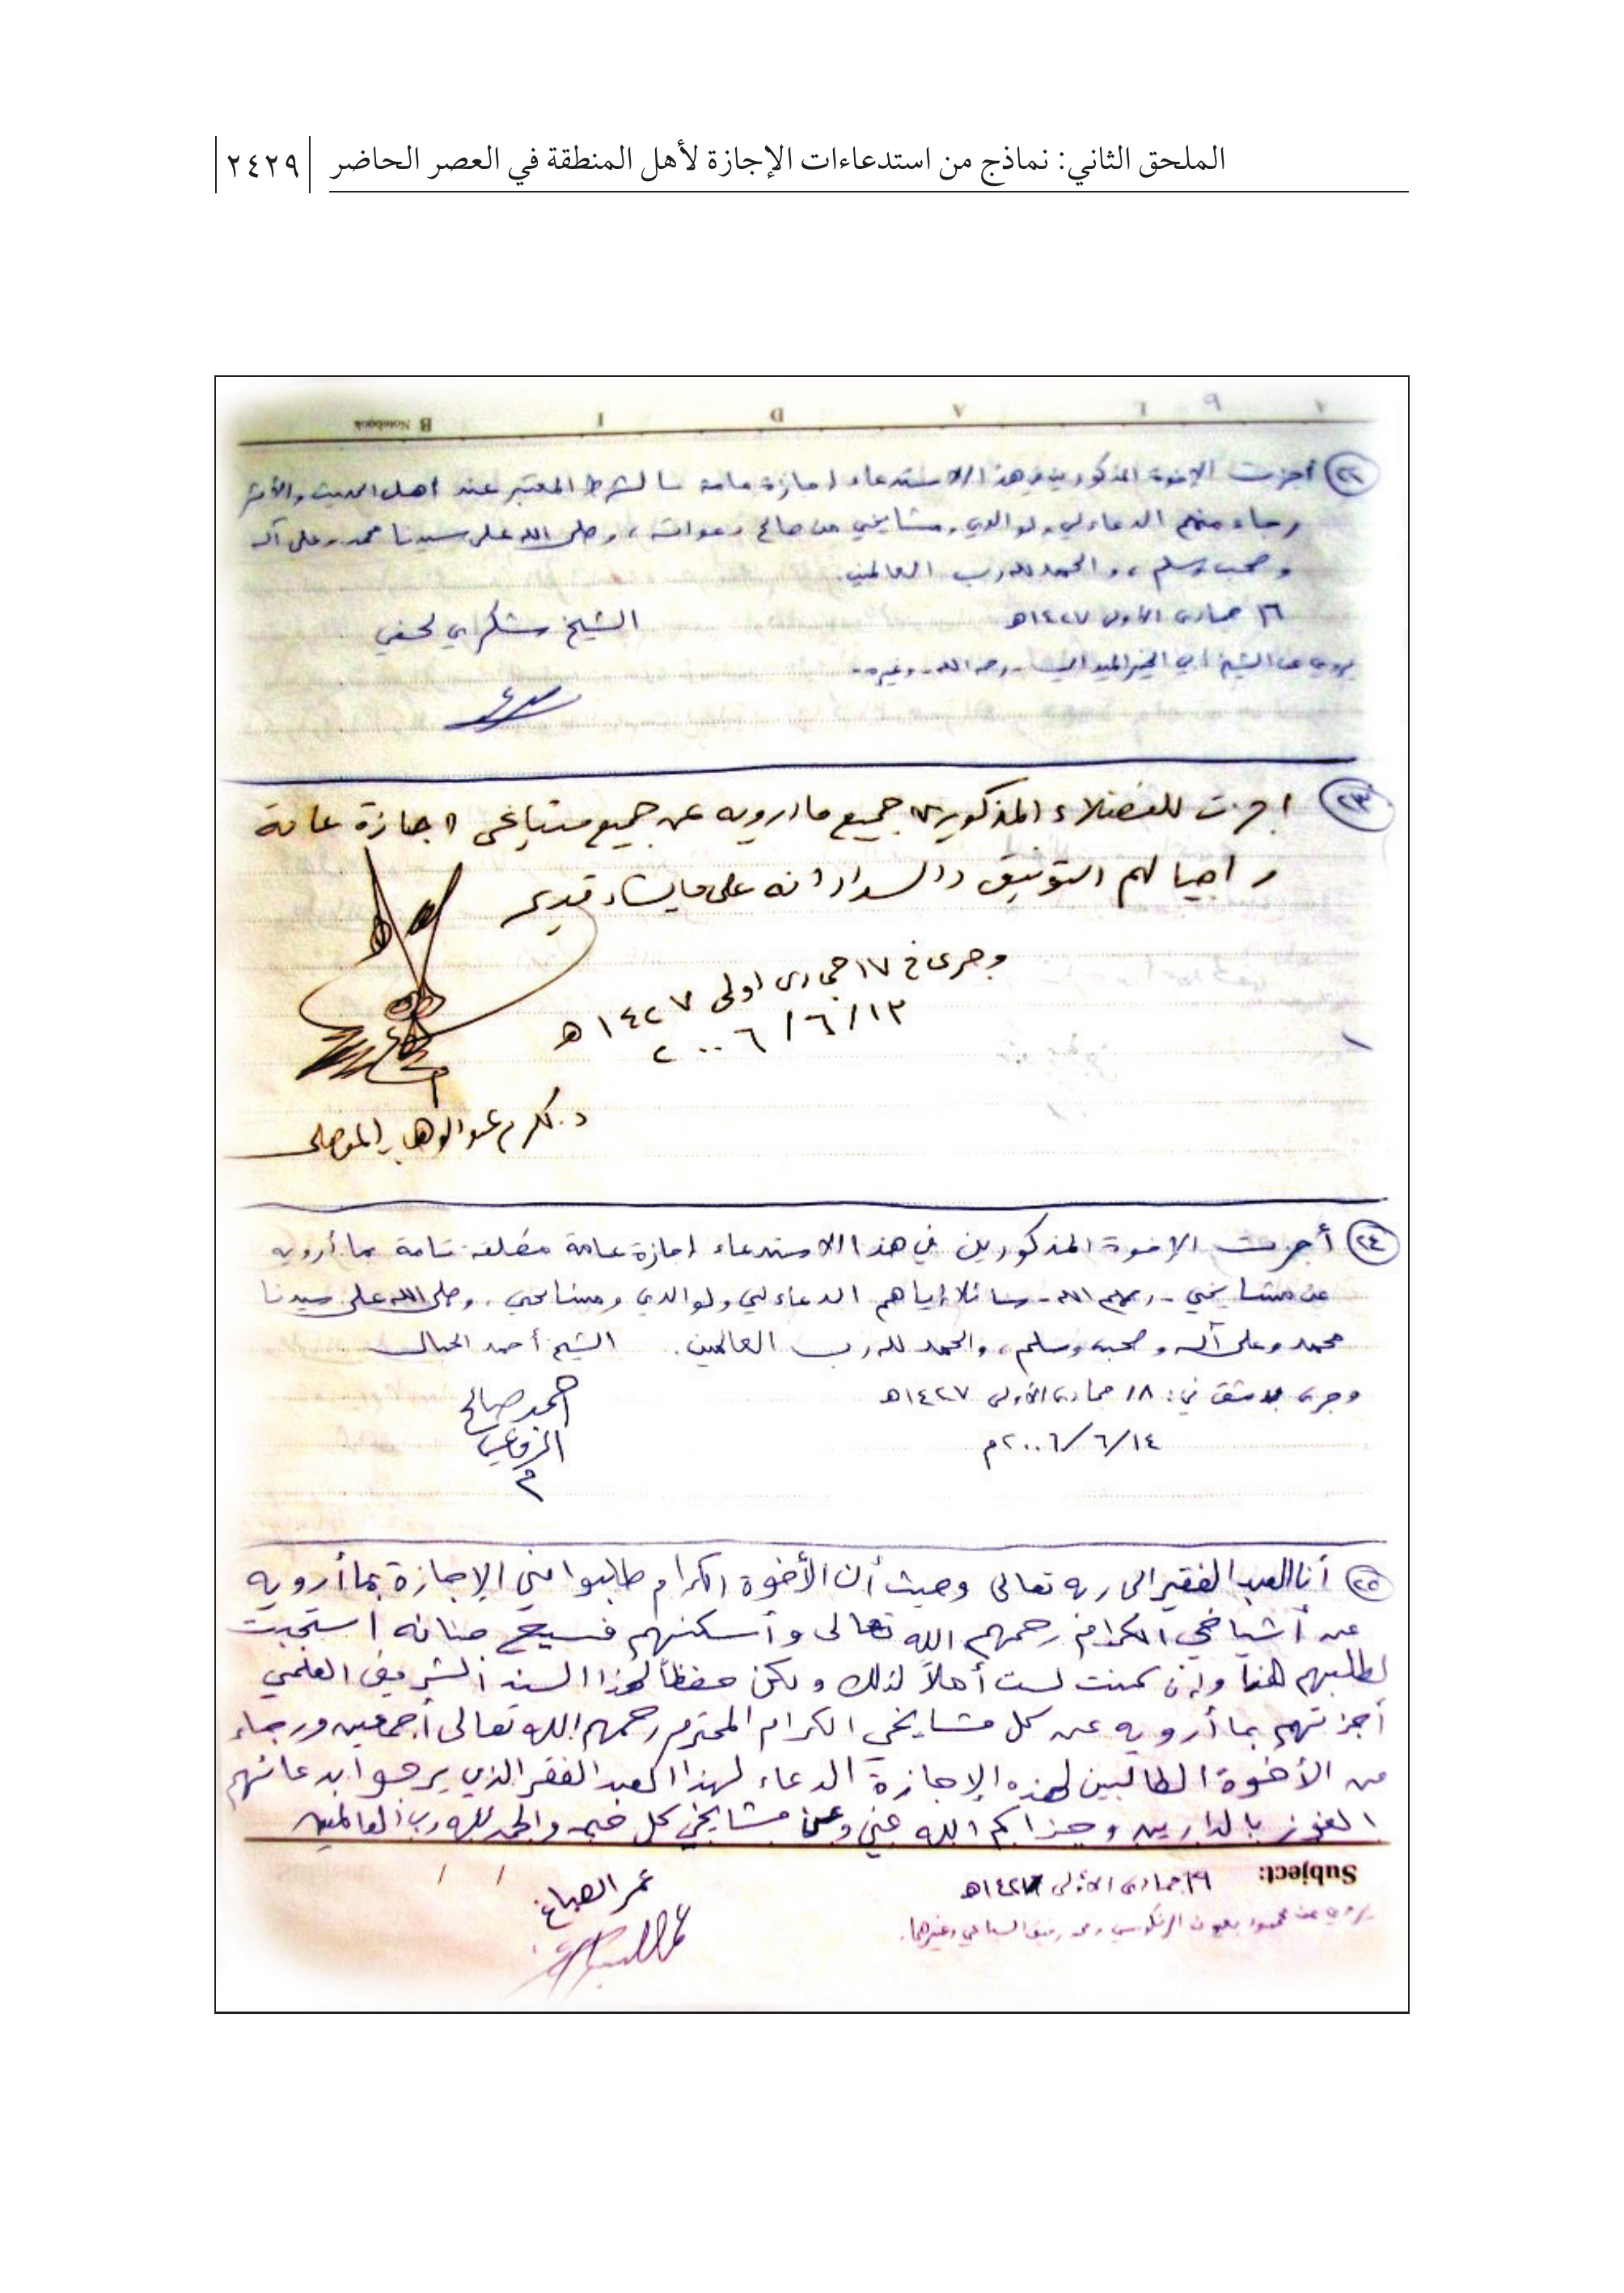 الملحق الثاني: نماذج من استدعاءات الإجازة لأهل المنطقة في العصر الحاضر
٢٤٢٩
B Notebook I D A L A
٩
٢٢ أجزت الإخوة المذكورين في هذا الاستدعاء إجازة عامة بالشرط المعتبر عند أهل الحديث والأثر
رجاء منهم الدعاء لي ولوالدي ومشايخي من صالح دعواته، وصلى الله على سيدنا محمد وعلى آله
وصحبه وسلم، والحمد لله رب العالمين.
١٦ جمادى الأولى ١٤٢٧هـ
الشيخ شكري لحفي
يروي عن الشيخ أبي الخير الميداني - رحمه الله - وغيره -
٢٣ اجزت للفضلاء المذكورين جميع ما ارويه عن جميع مشايخي اجازة عامة
راجيا لهم التوفيق والسداد انه على ما يشاء قدير
وجرى في ١٧ جمادى اولى ١٤٢٧هـ
١٣/٦/٢٠٠٦
د. مكرم عبد الوهاب الموصلي
٢٤ أجزت الإخوة المذكورين في هذا الاستدعاء إجازة عامة مطلقة تامة بما أرويه
عن مشايخي - رحمهم الله - سائلا إياهم الدعاء لي ولوالدي ومشايخي. وصلى الله على سيدنا
محمد وعلى آله وصحبه وسلم، والحمد لله رب العالمين. الشيخ أحمد الحبال
وجرى بدمشق في: ١٨ جمادى الأولى ١٤٢٧هـ
أحمد صالح
الرفاعي
١٤/٦/٢٠٠٦م
٢٥ أنا العبد الفقير الى ربه تعالى وحيث أن الأخوة الكرام طلبوا مني الإجازة بما أرويه
عن أشياخي الكرام رحمهم الله تعالى وأسكنهم فسيح جنانه استجبت
لطلبهم هذا وإن كنت لست أهلاً لذلك ولكن حفظاً لهذا السند الشريف العلمي
أجزتهم بما أرويه عن كل مشايخي الكرام المحترم رحمهم الله تعالى أجمعين ورجاء
من الأخوة الطالبين لهذه الإجازة الدعاء لهذا العبد الفقير الذي يرجوا بدعائهم
الفوز بالدارين وجزاكم الله عني وعن مشايخي كل خير والحمد لله رب العالمين
Subject:
١٩ جمادى الأولى ١٤٢٧هـ
عمر الصباغ
يروي عن محمود بعيون الرنكوسي ومحمد رفيق السباعي وغيرهما.